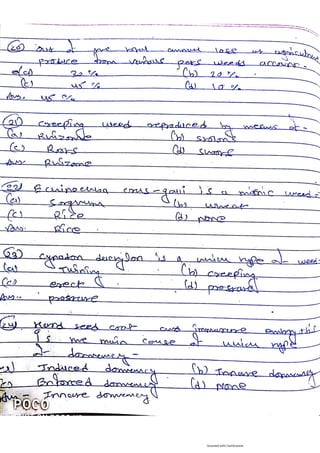 (20) Out of the total annual loss of agriculture
produce from various pests weeds account-
(a) 30 % (b) 20 %
(c) 45 % (d) 10 %
Ans. 45 %
(21) Creeping weed reproduced by means of-
(a) Rhizome (b) stolons
(c) Roots (d)
Ans. Rhizome
(22) Echinochloa crus-galli is a mimic weed-
(a) Sorghum (b) wheat
(c) Rice (d) none
Ans. Rice
(23) Cynodon dactylon is a which type of weed
(a) Twining (b) creeping
(c) erect (d)
Ans..
(24) Hard seed coat and immature embryo
is the main cause of which type
of dormancy-
Induced dormancy (b) Innate dormancy
Enforced dormancy (d) none
Ans - Innate dormancy
POCO
Scanned with CamScanner